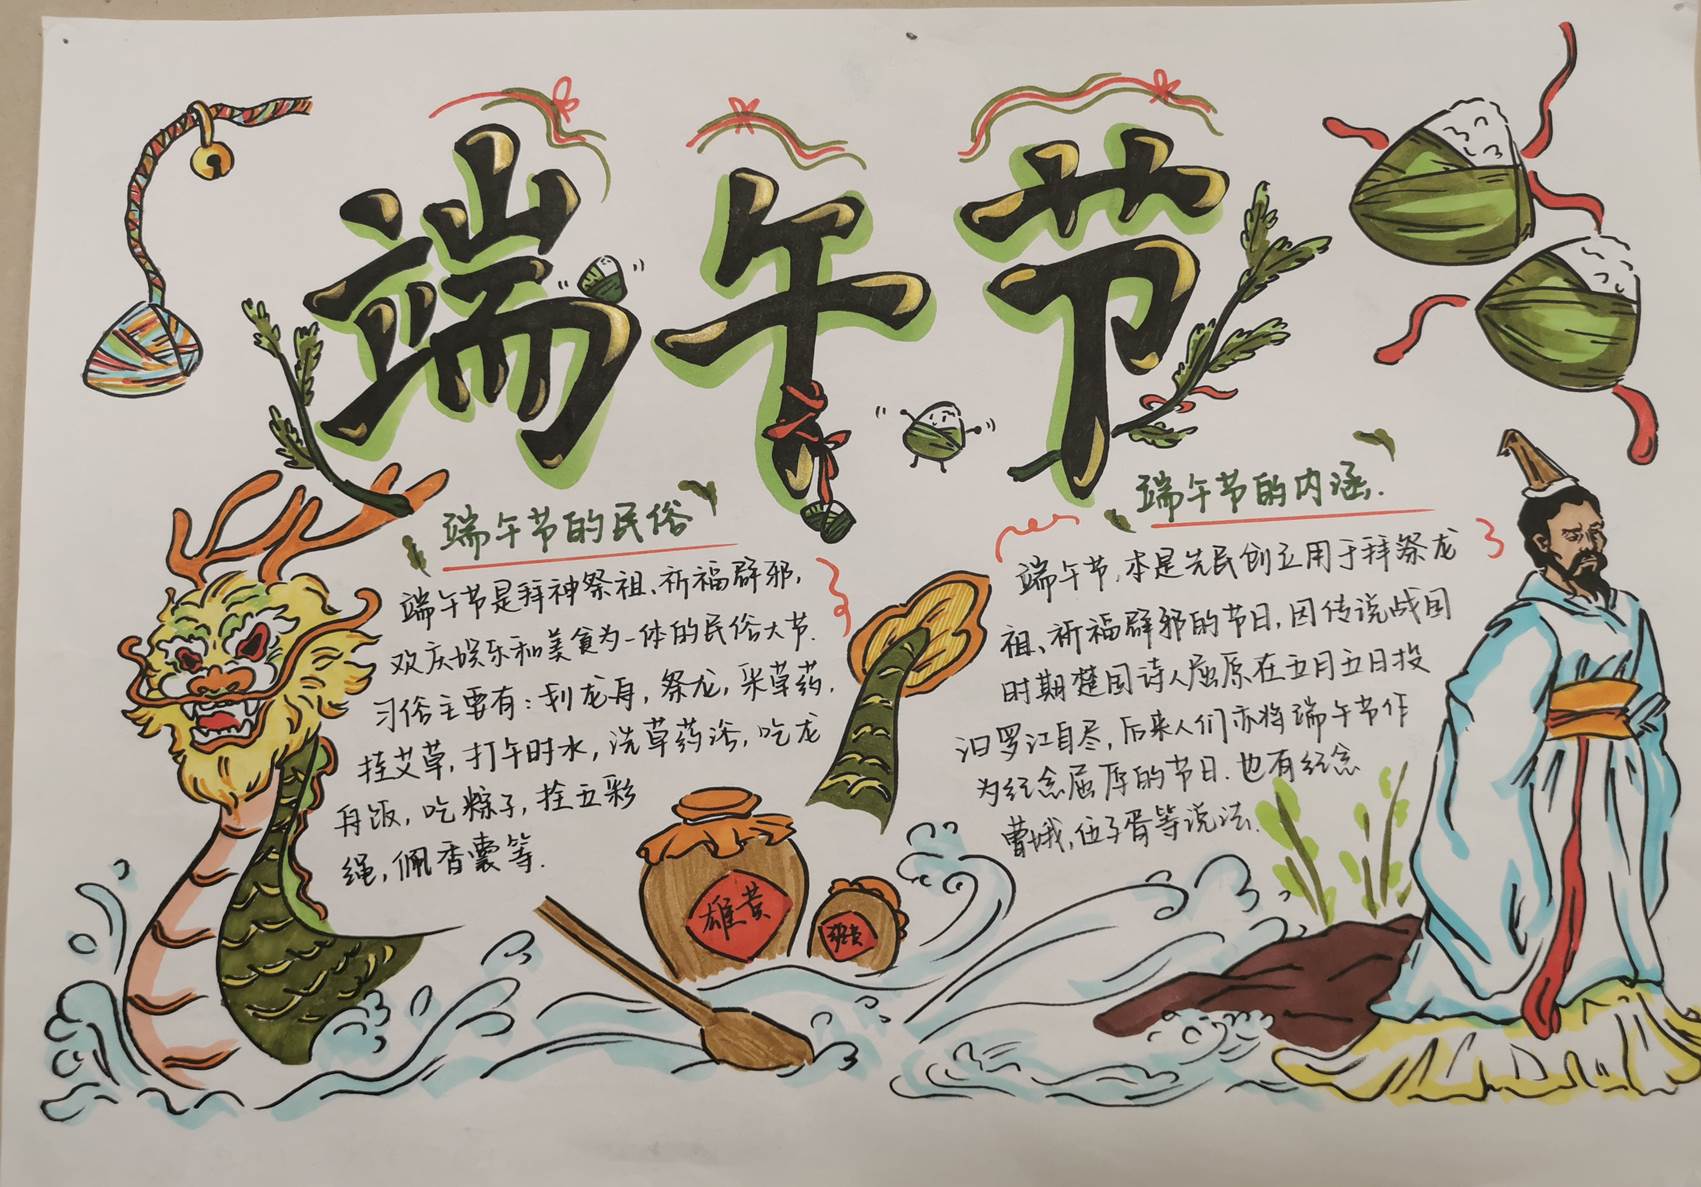 端午节
端午节的民俗
端午节是拜神祭祖、祈福辟邪,
欢庆娱乐和美食为一体的民俗大节.
习俗主要有:划龙舟,祭龙,采草药,
挂艾草,打午时水,洗草药浴,吃龙
舟饭,吃粽子,拴五彩
绳,佩香囊等.
端午节的内涵.
端午节,本是先民创立用于拜祭龙
祖、祈福辟邪的节日,因传说战国
时期楚国诗人屈原在五月五日投
汨罗江自尽,后来人们亦将端午节作
为纪念屈原的节日.也有纪念
曹娥,伍子胥等说法.
雄黄
雄黄